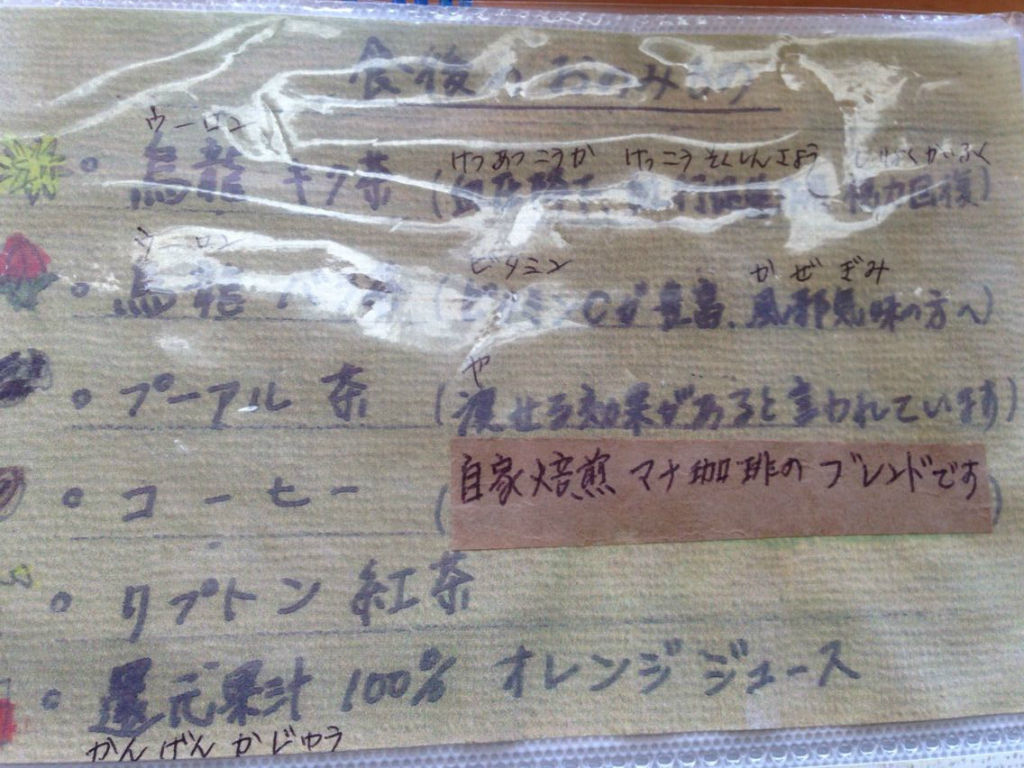 食後のおのみもの
ウーロン
けつあつこうか けっこうそくしんさよう しりょくかいふく
烏龍 キク茶 (血圧降下、血行促進 視力回復)
ウーロン
ビタミン かぜぎみ
烏龍 (ビタミンCが豊富、風邪気味の方へ)
や
プーアル茶 (痩せる効果があると言われています)
コーヒー (自家焙煎マナ珈琲のブレンドです
リプトン紅茶
還元果汁100% オレンジジュース
かんげんかじゅう